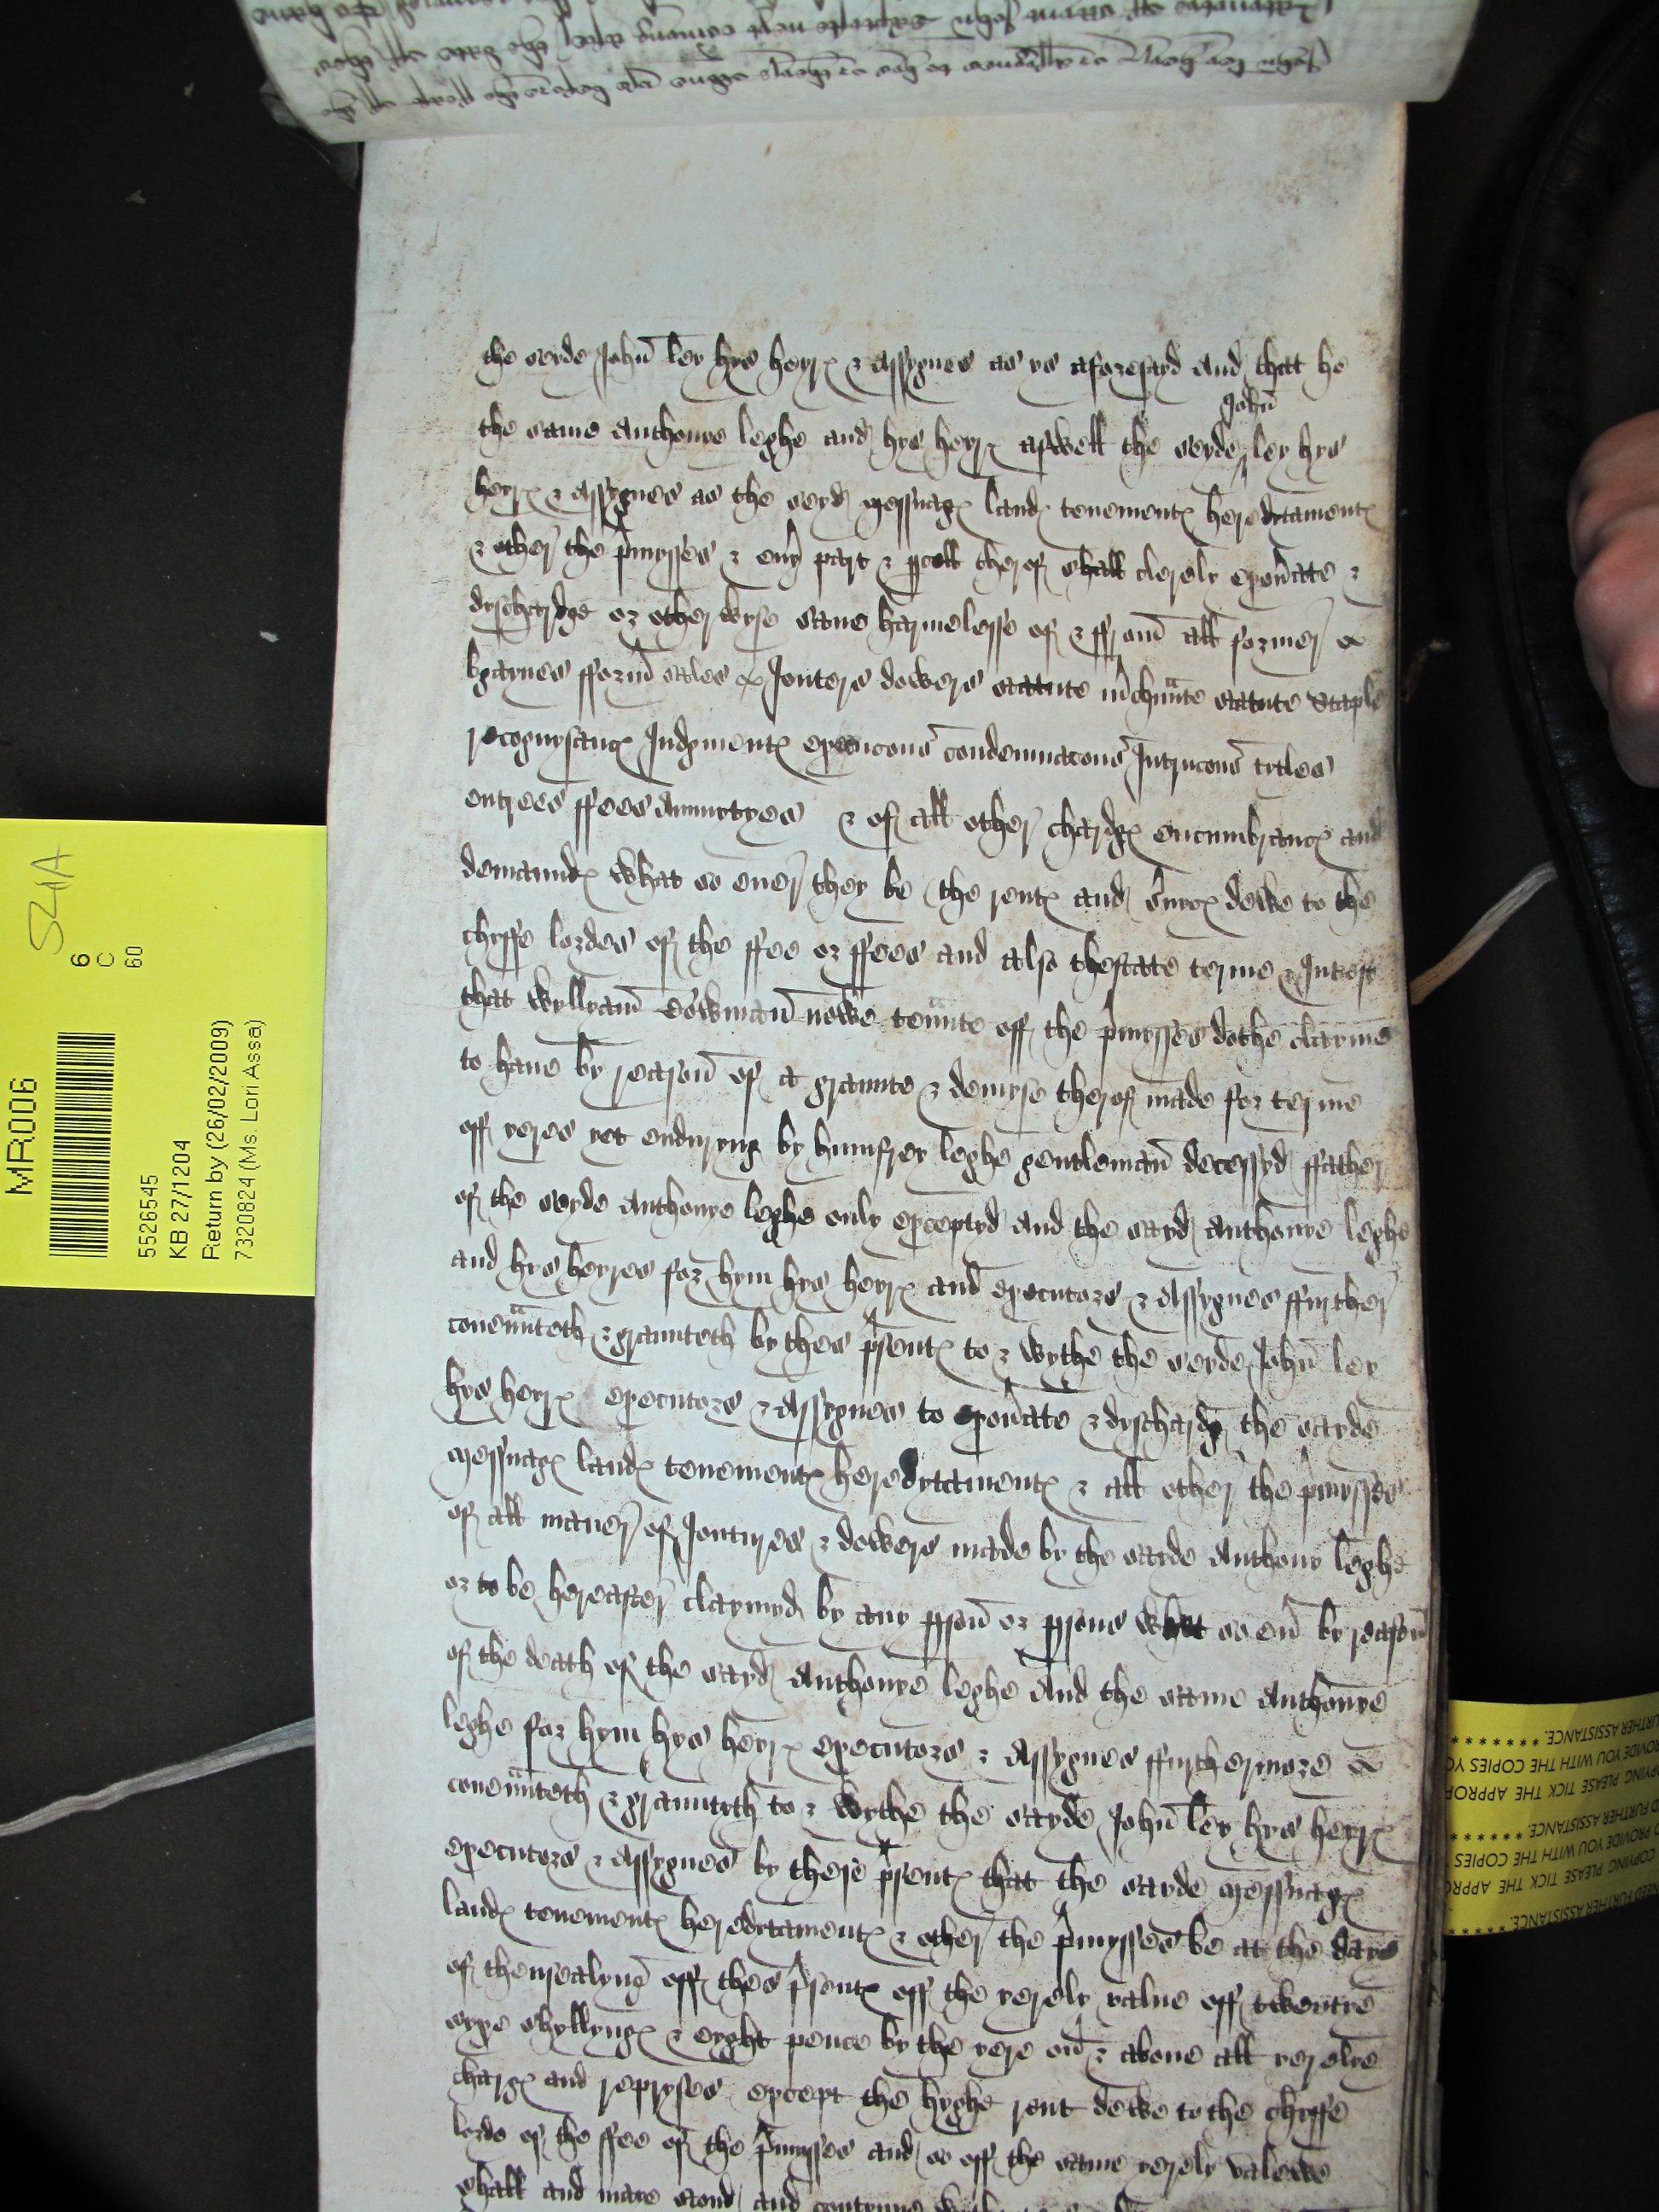 the seyde John ley hys heyrs & Assygnes as ys aforesayd And that he
the same Anthonye leghe and hys heyrs aswell the seyde John ley hys
heyrs & Assygnes as the seyd messuags lands tenements heredytaments
& other the p'mysses & eu'y part & p'cell therof shall clerely exon'ate &
dyschardge or otherwyse saue harmelesse of & ffrom all former
bgaynes fform' sales Joyntors dowers statute m'chaunte statute staple
recognysancs Judgments execucons condempnacons Intrucons tytles
entrees ffees Annuytyes & of all other chardgs encumbrancs and
demaunds what so euer they be the rents and s'uycs dewe to the
chyffe lordes of the ffee or ffees and also thestate terme & Interest
that wyllyam Bowman nowe tenante off the p'mysses dothe clayme
to haue by reason of a graunte & demyse therof made for terme
off yeres yet enduryng by humfrey leghe gentleman decessyd ffather
of the seyde Anthonye leghe only exceptyd And the sayd Anthonye leghe
and hys heyres for hym hys heyrs and executors & Assygnes ffurther
couenanteth & graunteth by thes p'sents to & wythe the seyde John ley
hys heyrs executors & Assygnes to exon'ate & dyschardg the sayde
messuags lands tenements heredytaments & all other the p'mysses
of all maner of Joyntures & dowers made by the sayde Anthony leghe
or to be hereafter claymyd by any p'son or p'sons what so eu' by reason
of the death of the sayd Anthonye leghe And the same Anthonye
leghe for hym hys heyrs executors & Assygnes ffurthermore
couenanteth & grauntyth to & wythe the sayde John ley hys heyrs
executors & Assygnes by these p'sents that the sayde messuags
lands tenements heredytaments & other the p'mysses be at the daye
of thensealyng off thes p'sents off the yerely value off twentye
syxe shyllyngs & eyght pence by the yere ou' & aboue all yerelye
chargs and repryses except the hyghe rent dewe to the chyffe
lorde of the ffee of the p'mysses and so off the same yerely valewe
shall and maye stond and contynue
MR006
5526545
KB 27/1204
Return by (26/02/2009)
7320824 (Ms. Lori Assa)
S41A
6
C
60
FURTHER ASSISTANCE.
PROVIDE YOU WITH THE COPIES YO
COPYING PLEASE TICK THE APPROP
D FURTHER ASSISTANCE.
O PROVIDE YOU WITH THE COPIES
COPYING PLEASE TICK THE APPRO
NEED FURTHER ASSISTANCE.